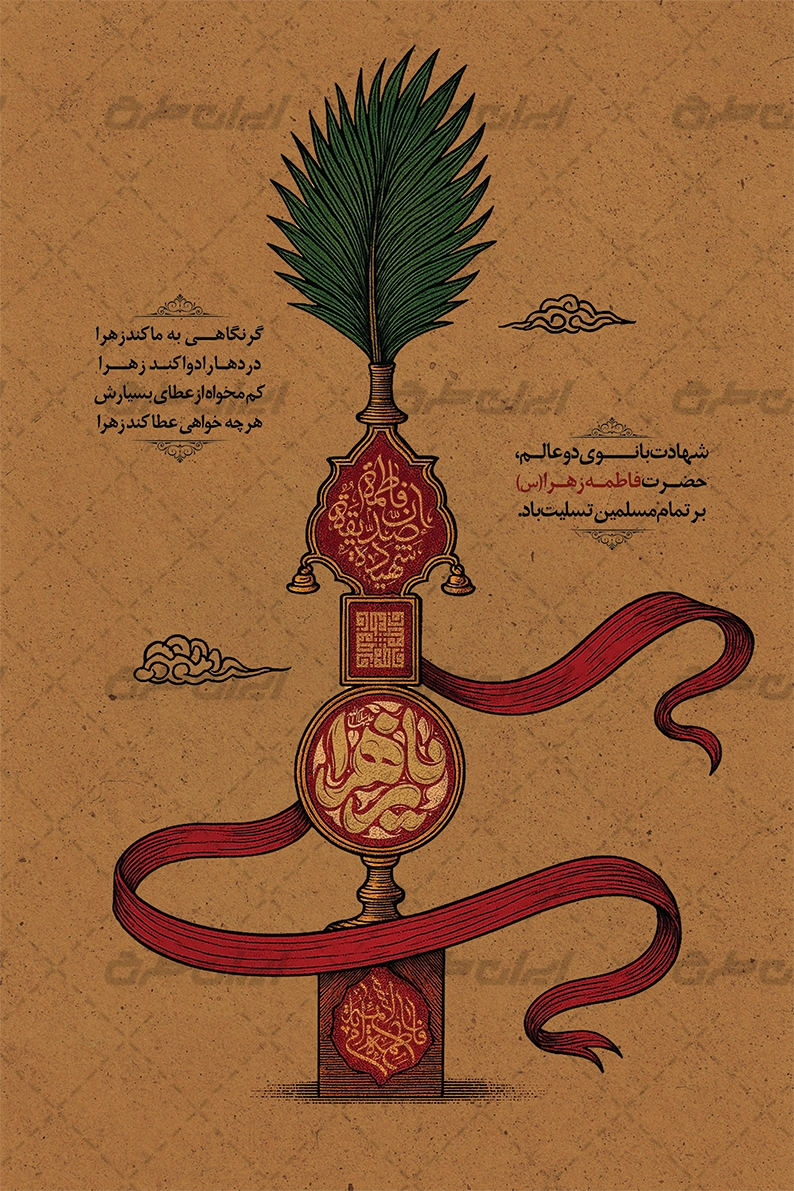 گر نگاهی به ما کند زهرا
دردها را دوا کند زهرا
کم مخواه از عطای بسیارش
هر چه خواهی عطا کند زهرا
شهادت بانوی دو عالم،
حضرت فاطمه زهرا (س)
بر تمام مسلمین تسلیت باد.
ان فاطمة
صدیقة
شهیدة
یا زهرا
سلام الله علیها
ایران طرح